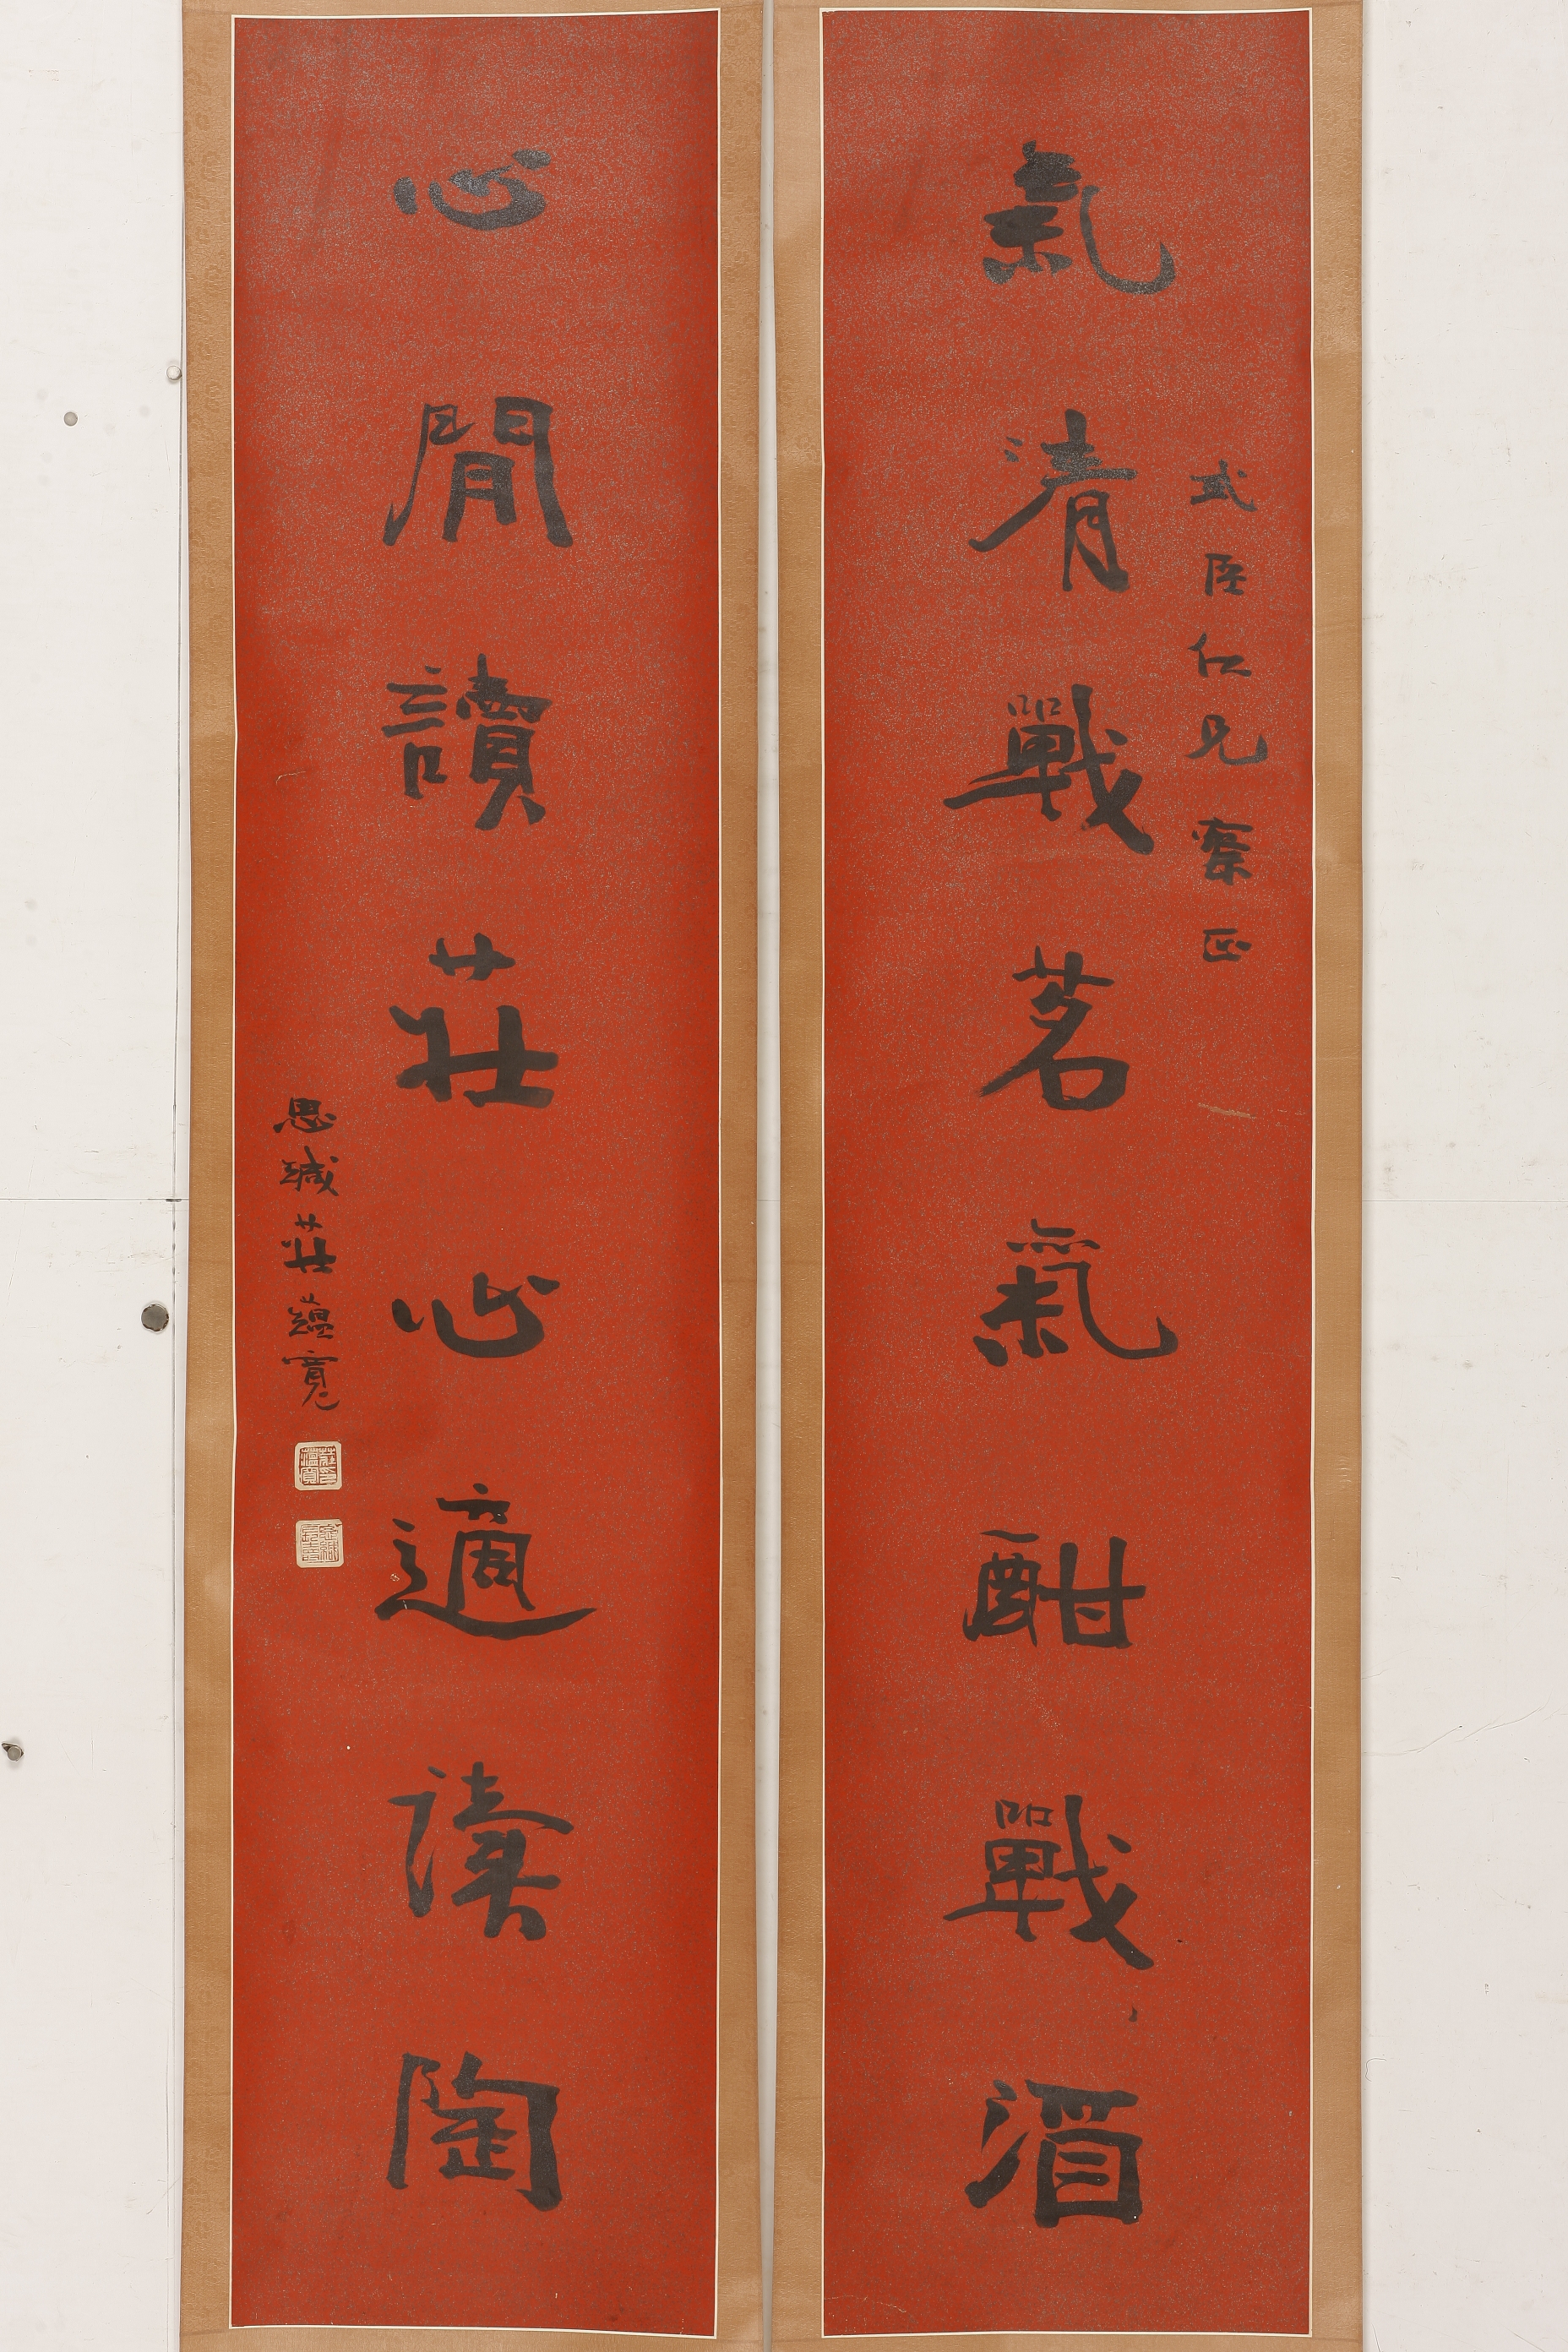 氣清戰茗氣酣戰酒
式臣仁兄察正
心閒讀莊心適讀陶
思緘莊蘊寬
莊蘊寬印